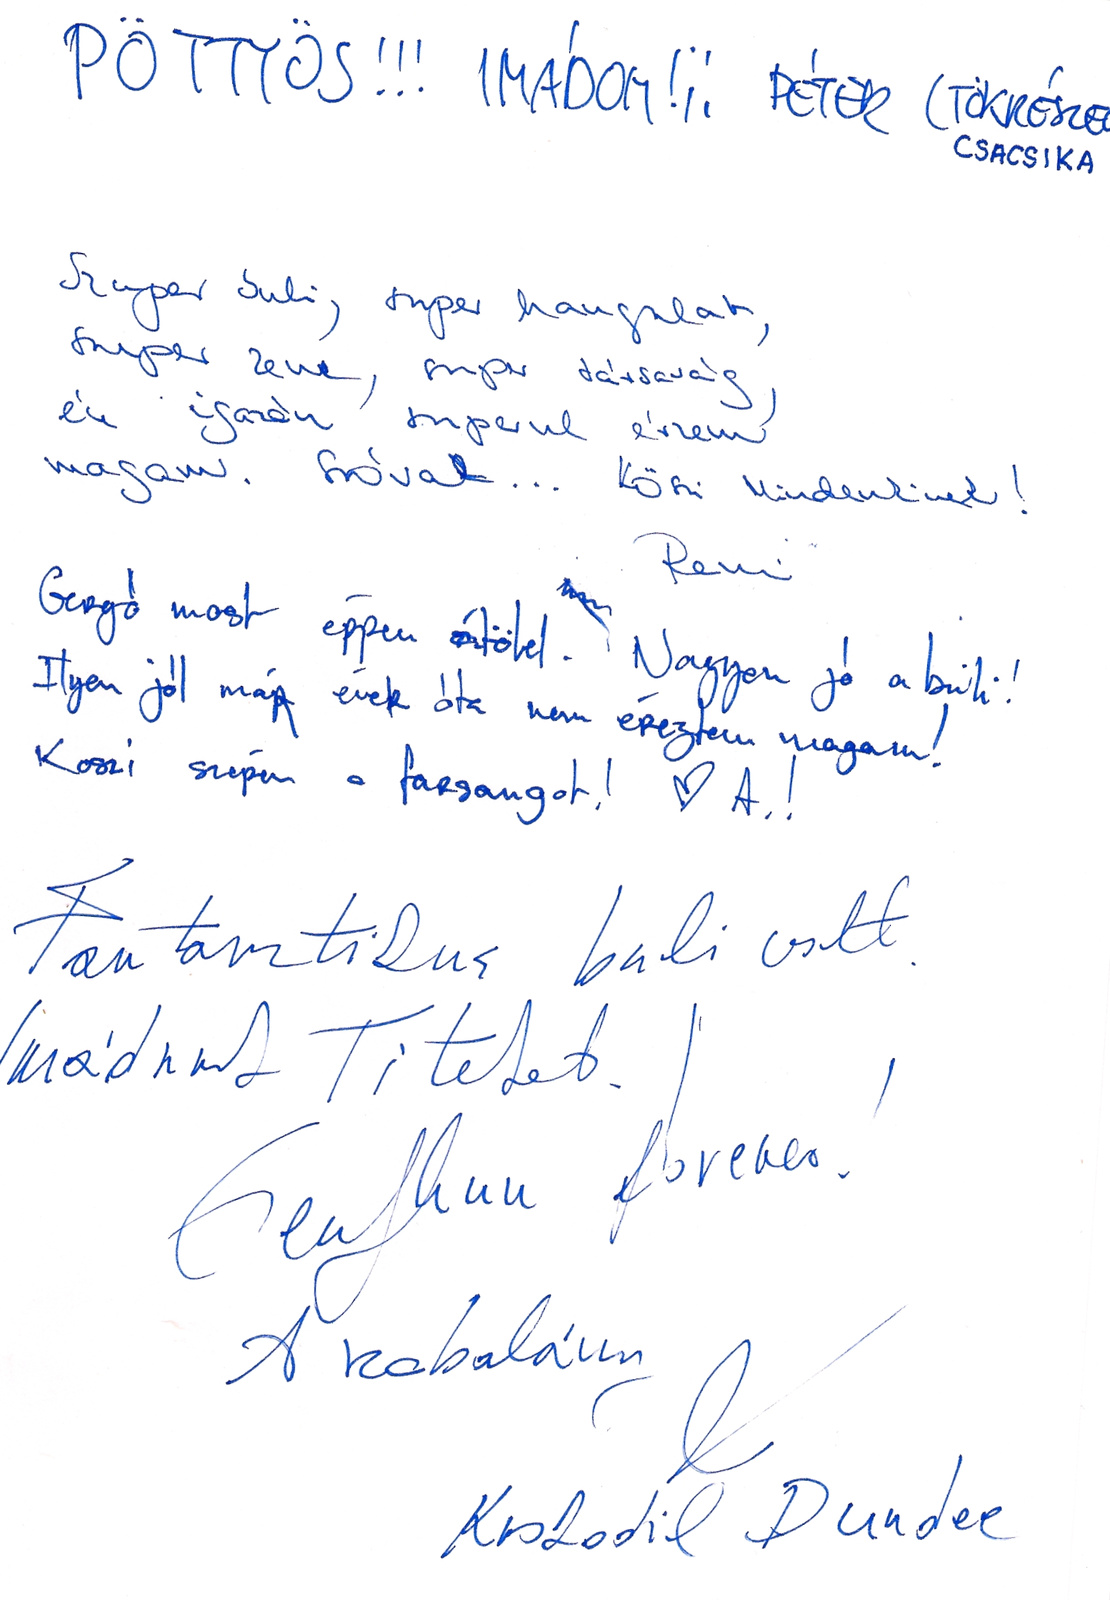 PÖTTYÖS!!! IMÁDOM!¡¡ PÉTER (TÖKRÉSZEG
CSACSIKA
Szuper buli, szuper hangulat,
szuper zene, szuper társaság,
én igazán szuperul érzem
magam. Szóval... Köszi mindenkinek!
Reni
Gergő most éppen sötöbel. Nagyon jó a buli!
Ilyen jól már évek óta nem éreztem magam!
Köszi szépen a farsangot! ♡ A.!
Fantasztikus buli volt.
Imádunk Titeket!
forever!
A kabalám
Krokodil Dundee